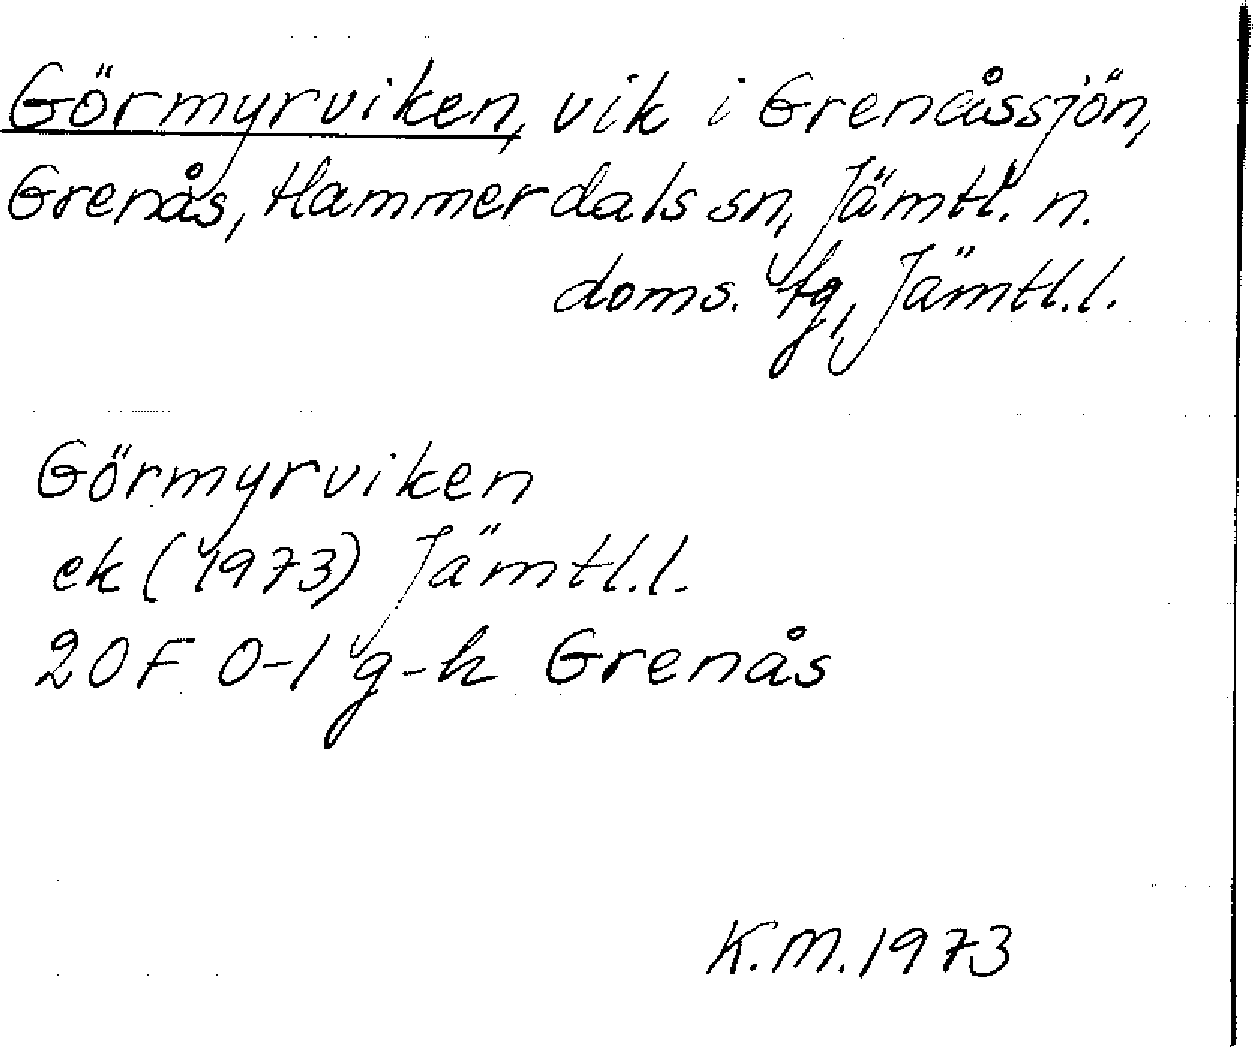 Görmyrviken, vik i Grenåssjön,
Grenås, Hammerdals sn, Jämtl. n.
doms. tg, Jämtl. l.
Görmyrviken
ek (1973) Jämtl. l.
20F 0-1 g-h Grenås
K.M. 1973